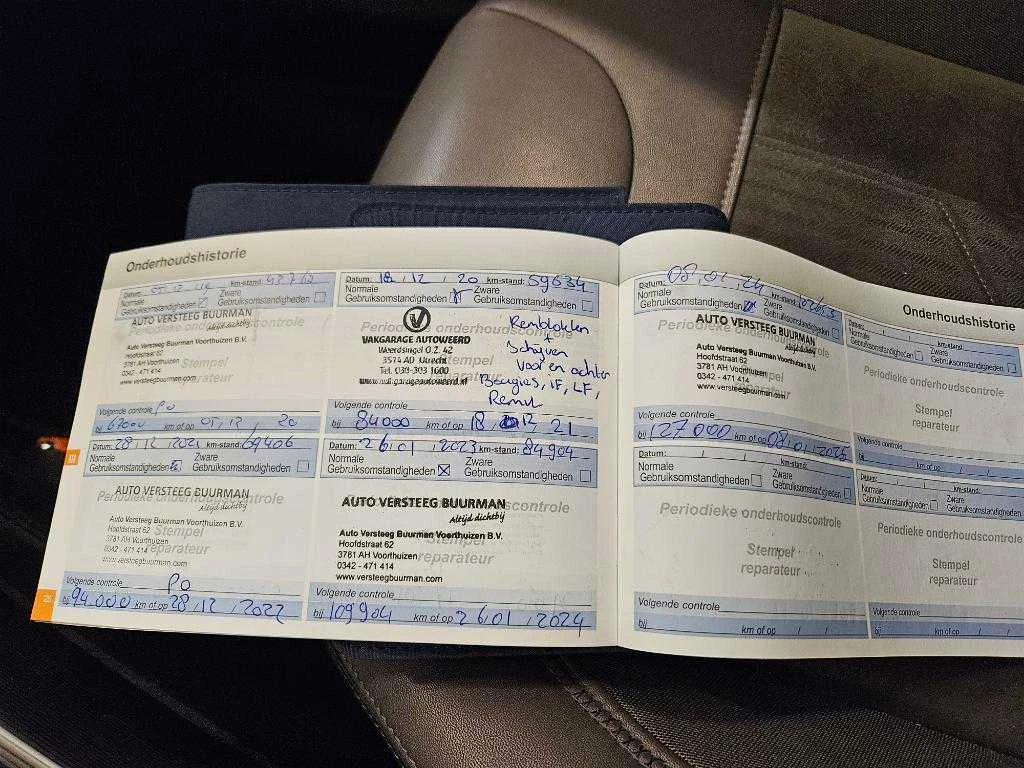 Onderhoudshistorie
Datum: km-stand:
Normale Zware
Gebruiksomstandigheden Gebruiksomstandigheden
AUTO VERSTEEG BUURMAN
Altijd dichtbij
Auto Versteeg Buurman Voorthuizen B.V.
Hoofdstraat 62
3781 AH Voorthuizen
0342 - 471 414
www.versteegbuurman.com
Volgende controle PO
bij km of op 05, 12, 20
Datum: 18, 12, 20 km-stand: 59634
Normale Zware
Gebruiksomstandigheden Gebruiksomstandigheden
Periodieke onderhoudscontrole
VAKGARAGE AUTOWEERD
Weerdsingel O.Z. 42
3514 AD Utrecht
Stempel
reparateur
Remblokken
+
Schijven
voor en achter
Bougies, IF, LF,
Volgende controle
bij 84000 km of op 18, 12 21
Datum: 28, 12, 2021 km-stand: 69406
Normale Zware
Gebruiksomstandigheden Gebruiksomstandigheden
AUTO VERSTEEG BUURMAN
Periodieke onderhoudscontrole
Altijd dichtbij
Auto Versteeg Buurman Voorthuizen B.V.
Hoofdstraat 62
3781 AH Voorthuizen
0342 - 471 414
www.versteegbuurman.com
Stempel
reparateur
Volgende controle PO
bij 94.000 km of op 28, 12, 2022
Datum: 26, 01, 2023 km-stand: 84904
Normale Zware
Gebruiksomstandigheden Gebruiksomstandigheden
AUTO VERSTEEG BUURMAN
Altijd dichtbij
Auto Versteeg Buurman Voorthuizen B.V.
Hoofdstraat 62
3781 AH Voorthuizen
0342 - 471 414
www.versteegbuurman.com
Stempel
reparateur
Volgende controle
bij 109904 km of op 26, 01, 2024
Onderhoudshistorie
Datum: 08, 01, 24 km-stand:
Normale Zware
Gebruiksomstandigheden Gebruiksomstandigheden
AUTO VERSTEEG BUURMAN
Altijd dichtbij
Auto Versteeg Buurman Voorthuizen B.V.
Hoofdstraat 62
3781 AH Voorthuizen
0342 - 471 414
www.versteegbuurman.com
Stempel
reparateur
Volgende controle
bij 127000 km of op 08, 01, 2025
Datum: km-stand:
Normale Zware
Gebruiksomstandigheden Gebruiksomstandigheden
Periodieke onderhoudscontrole
Stempel
reparateur
Volgende controle
bij km of op / /
Datum: km-stand:
Normale Zware
Gebruiksomstandigheden Gebruiksomstandigheden
Periodieke onderhoudscontrole
Stempel
reparateur
Volgende controle
bij km of op / /
Datum: km-stand:
Normale Zware
Gebruiksomstandigheden Gebruiksomstandigheden
Periodieke onderhoudscontrole
Stempel
reparateur
Volgende controle
bij km of op / /